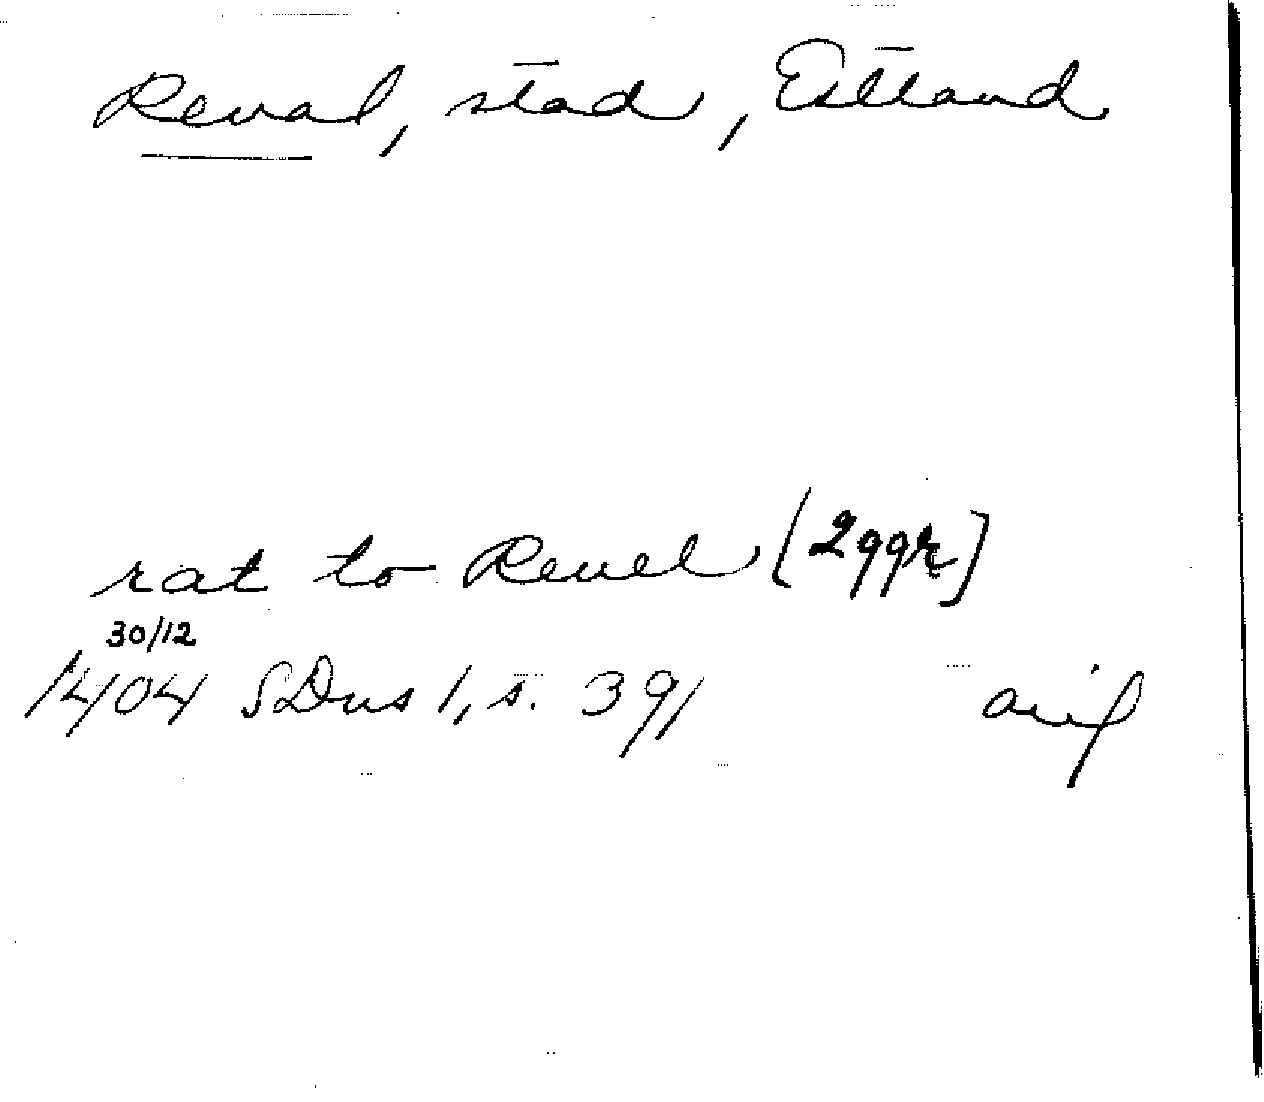 Reval, stad, Estland
rat to Reuel [2 ggr]
30/12
1404 SDns 1, s. 391 avif